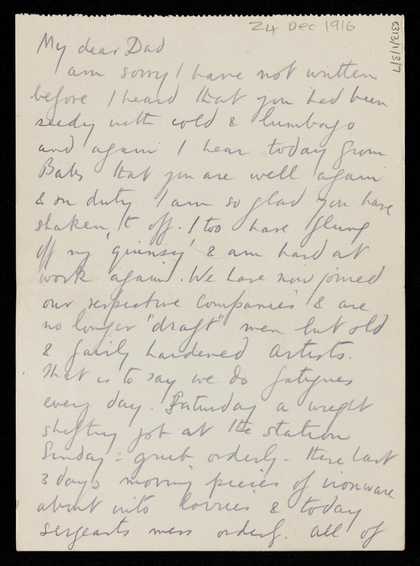 24 Dec 1916
My dear Dad
I am sorry I have not written
before I heard that you had been
seedy with cold & lumbago
and again I hear today from
Babs that you are well again
& on duty I am so glad you have
shaken it off. I too have flung
off my 'quinsy' & am hard at
work again. We have now joined
our respective companies & are
no longer "draft" men but old
& fairly hardened artists.
That is to say we do fatigues
every day. Saturday a weight
shifting job at the station
Sunday = grub orderly - these last
3 days moving pieces of ironware
about into lorries & today
sergeants mess orderly. All of